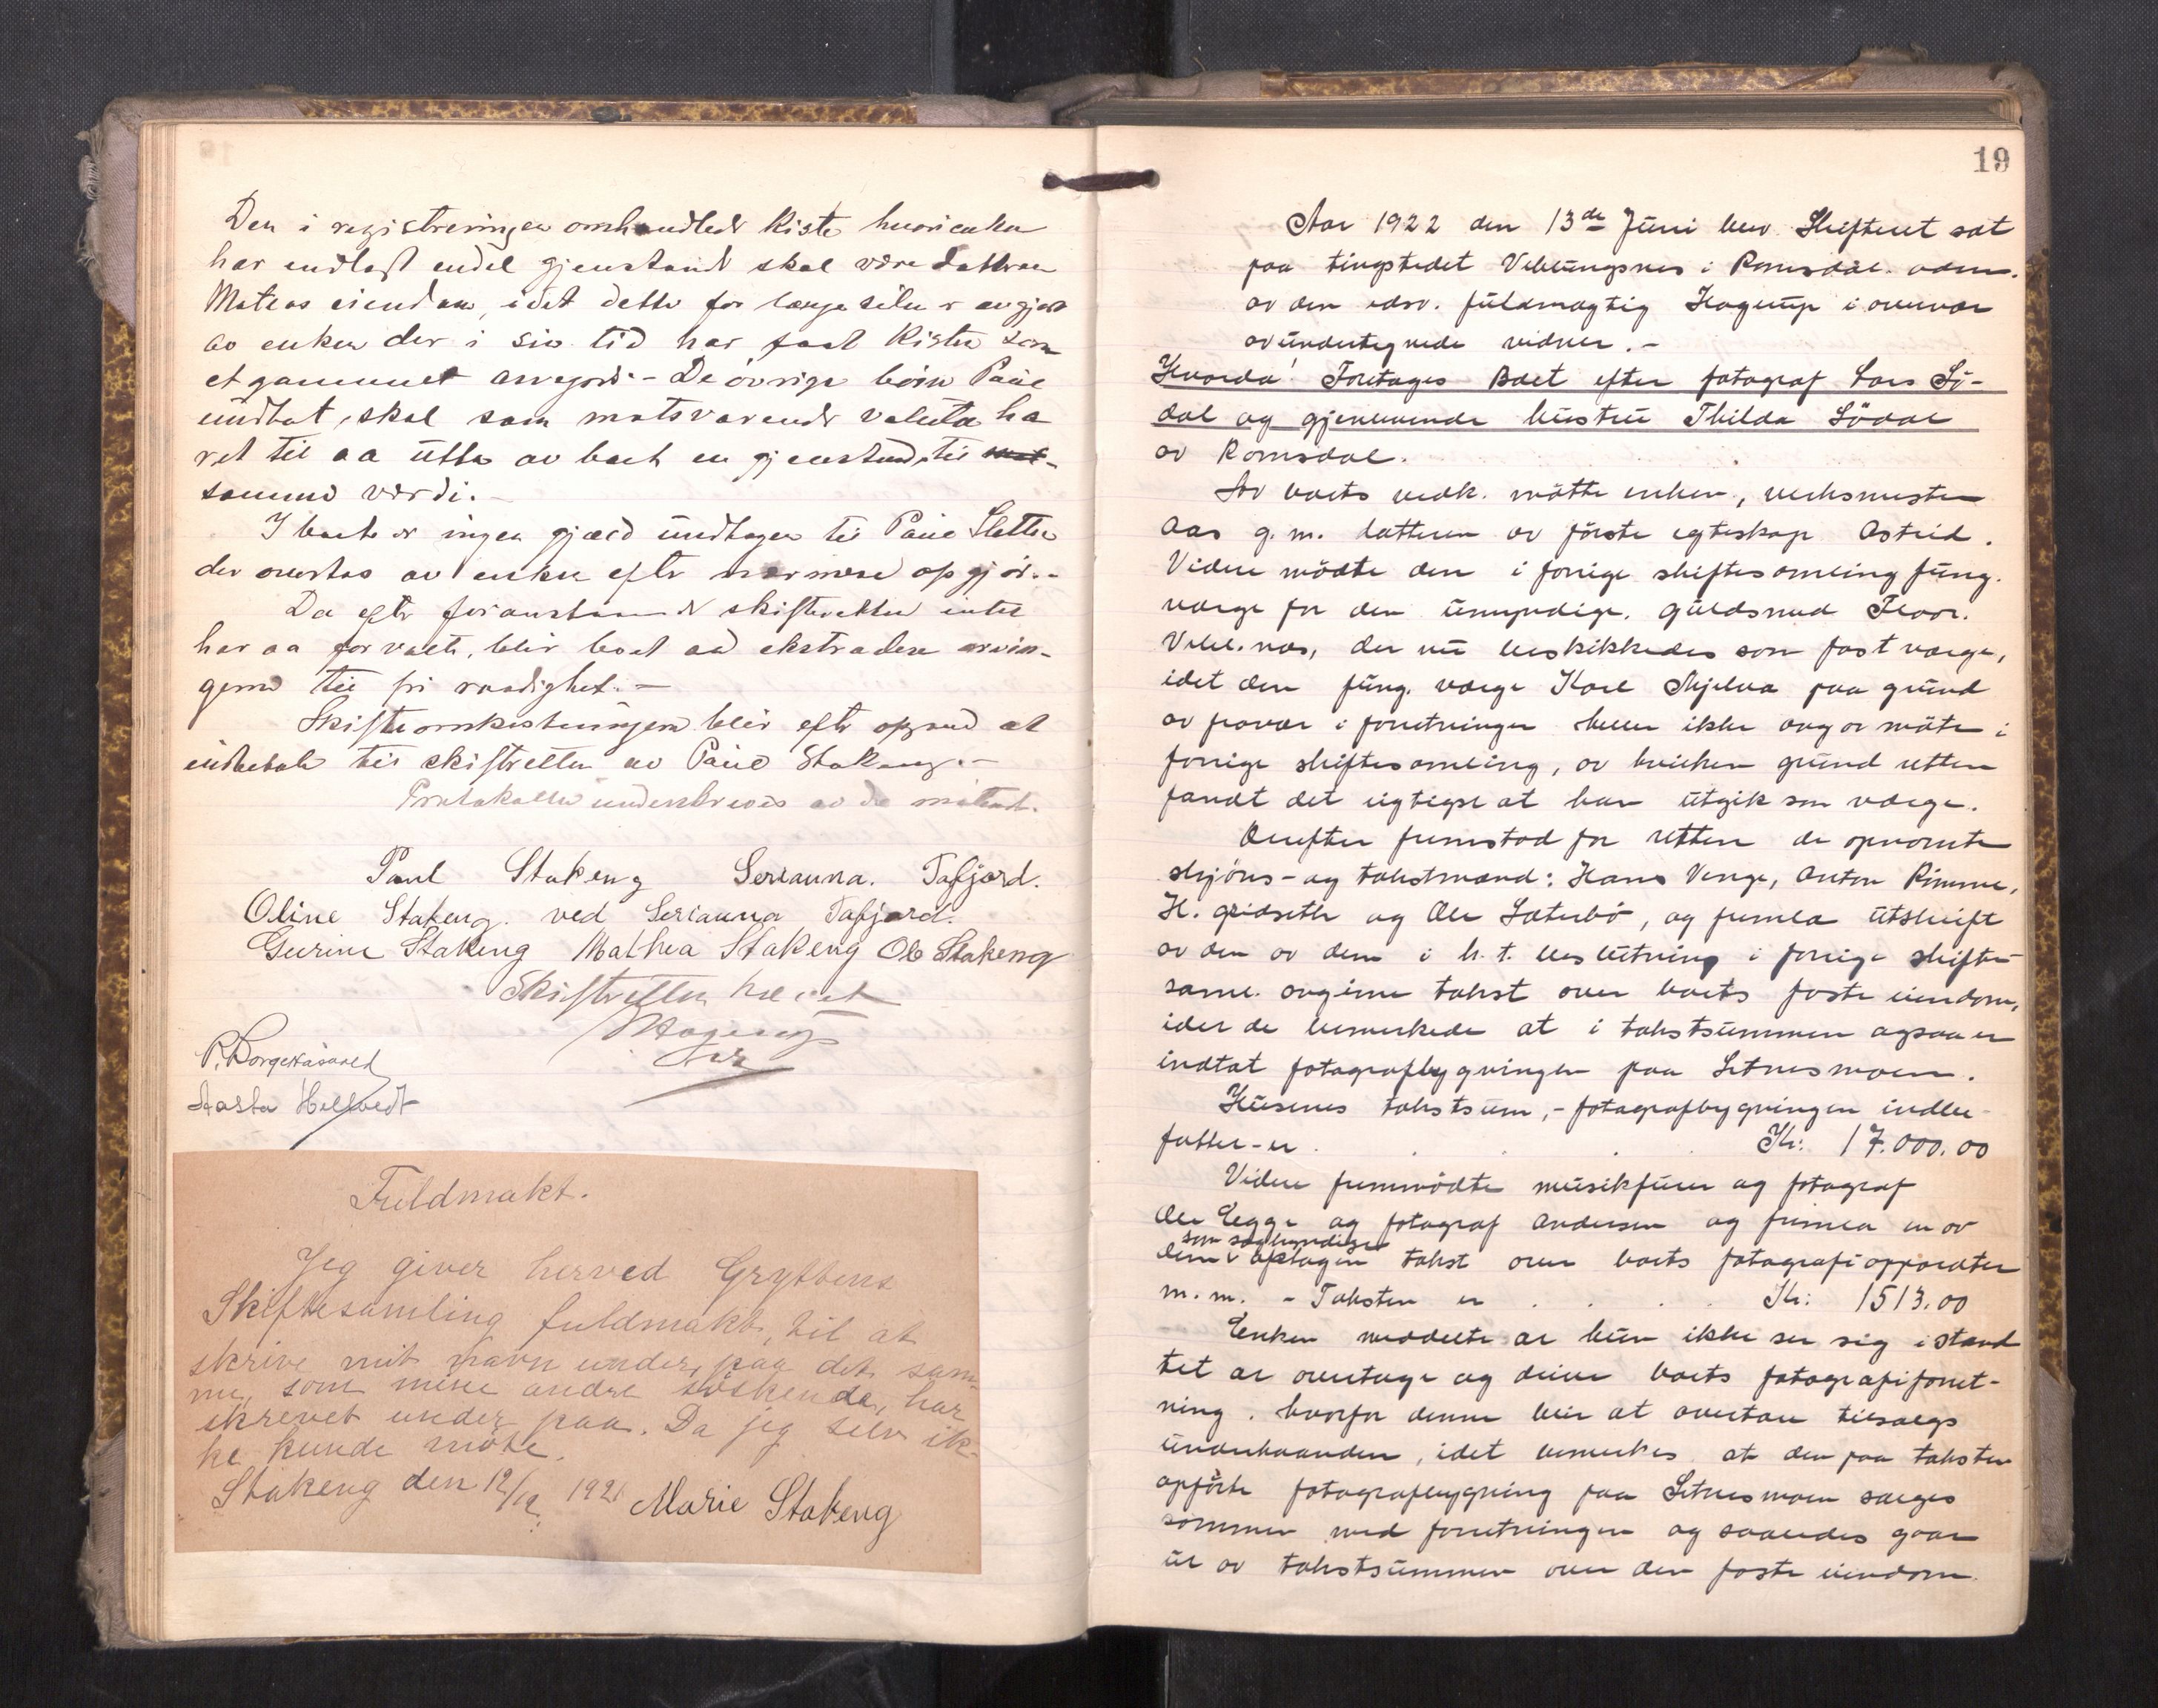 Den i registreringen omhandlede Kiste hvori enken
har indlagt endel gjenstande skal være datteren
Mateas eiendom, idet dette for længe siden er avgjort
av enken der i sin tid har faat Kisten som
et gammelt arvegods. - De övrige börn Paul
undtat, skal som motsvarende valuta ha
ret til aa utta av boet en gjenstand til
samme værdi. -
I boet er ingen gjæld undtagen til Paul Sletten
der overtas av enken efter nærmere opgjör. -
Da efter foranstaaende skifteretten intet
har aa forvalte, blir boet at ekstradere arvin-
gerne til fri raadighet. -
Skifteomkostningerne blir efter opgave at
indbetale til skifteretten av Paul Stokeng. -
Protokollen underskrives av de mötende.
Paul Stokeng Serianna. Tafjord.
Oline Stokeng. ved Serianna Tafjord.
Gurine Stokeng Mathea Stokeng Ole Stokeng
Skifteretten hævet
Hagerup
P. Borgekåsveld
Aasta Helsvedt
Fuldmakt.
Jeg giver herved Gryttens
Skiftesamling fuldmakt, til at
skrive mit navn under, paa det sam-
me, som mine andre söskende, har
skrevet under paa. Da jeg selv ik-
ke kunde möte.
Stokeng den 12/12 1921 Marie Stokeng
19
Aar 1922 den 13de Juni blev Skifteret sat
paa tingstedet Veblungsnes i Romsdal. adm.
av den edsv. fuldmægtig Hagerup i overvær
av undertegnede vidner. -
Hvorda! Foretages Boet efter fotograf Lars Sö-
dal og gjenlevende hustru Thilda Södal
av Romsdal.
For boets vedk. mötte enken, verksmester
Aas g. m. datteren av förste egteskap Astrid.
Videre mödte den i forrige skiftesamling fung.
værge for den umyndige, guldsmed Floor.
Vebl.nes, der nu beskikkedes som fast værge,
idet den fung. værge Karl Mjelva paa grund
av fravær i forretninger heller ikke avga möte i
forrige skiftesamling, av hvilken grund retten
fandt det rigtigst at han utgik som værge.
Derefter fremstod for retten de opnævnte
skjöns- og takstmænd: Hans Venge, Anton Rimme,
H. Gridseth og Ole Sæterbö, og fremla utskrift
av den av dem i h. t. beslutning i forrige skifte-
saml. avgivne takst over boets faste eiendom,
idet de bemerkede at i takstsummen ogsaa er
indtat fotografbygningen paa Setnesmoen.
Husenes takstsum, - fotografbygningen indbe-
fattet - er . . . . Kr: 17.000.00
Videre fremmödte musikförer og fotograf
Ole Legge og fotograf Andersen og fremla en av
som sagkyndige
dem optagen takst over boets fotografiapparater
m. m. - Taksten er . . . . Kr: 1513.00
Enken meddelte at hun ikke ser sig istand
til at overtage og drive boets fotografiforret-
ning. hvorfor denne blir at avertere tilsalgs
underhaanden, idet bemerkes at den paa taksten
opförte fotografbygning paa Setnesmoen sælges
sammen med forretningen og saaledes gaar
ut av takstsummen over den faste eiendom.